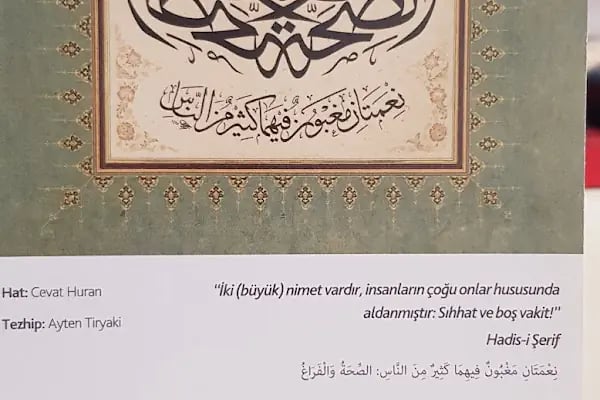 نِعْمَتَانِ مَغْبُونٌ فِيهِمَا كَثِيرٌ مِنَ النَّاسِ
Hat: Cevat Huran
Tezhip: Ayten Tiryaki
“İki (büyük) nimet vardır, insanların çoğu onlar hususunda
aldanmıştır: Sıhhat ve boş vakit!”
Hadis-i Şerif
نِعْمَتَانِ مَغْبُونٌ فِيهِمَا كَثِيرٌ مِنَ النَّاسِ: الصِّحَةُ وَالْفَرَاغُ